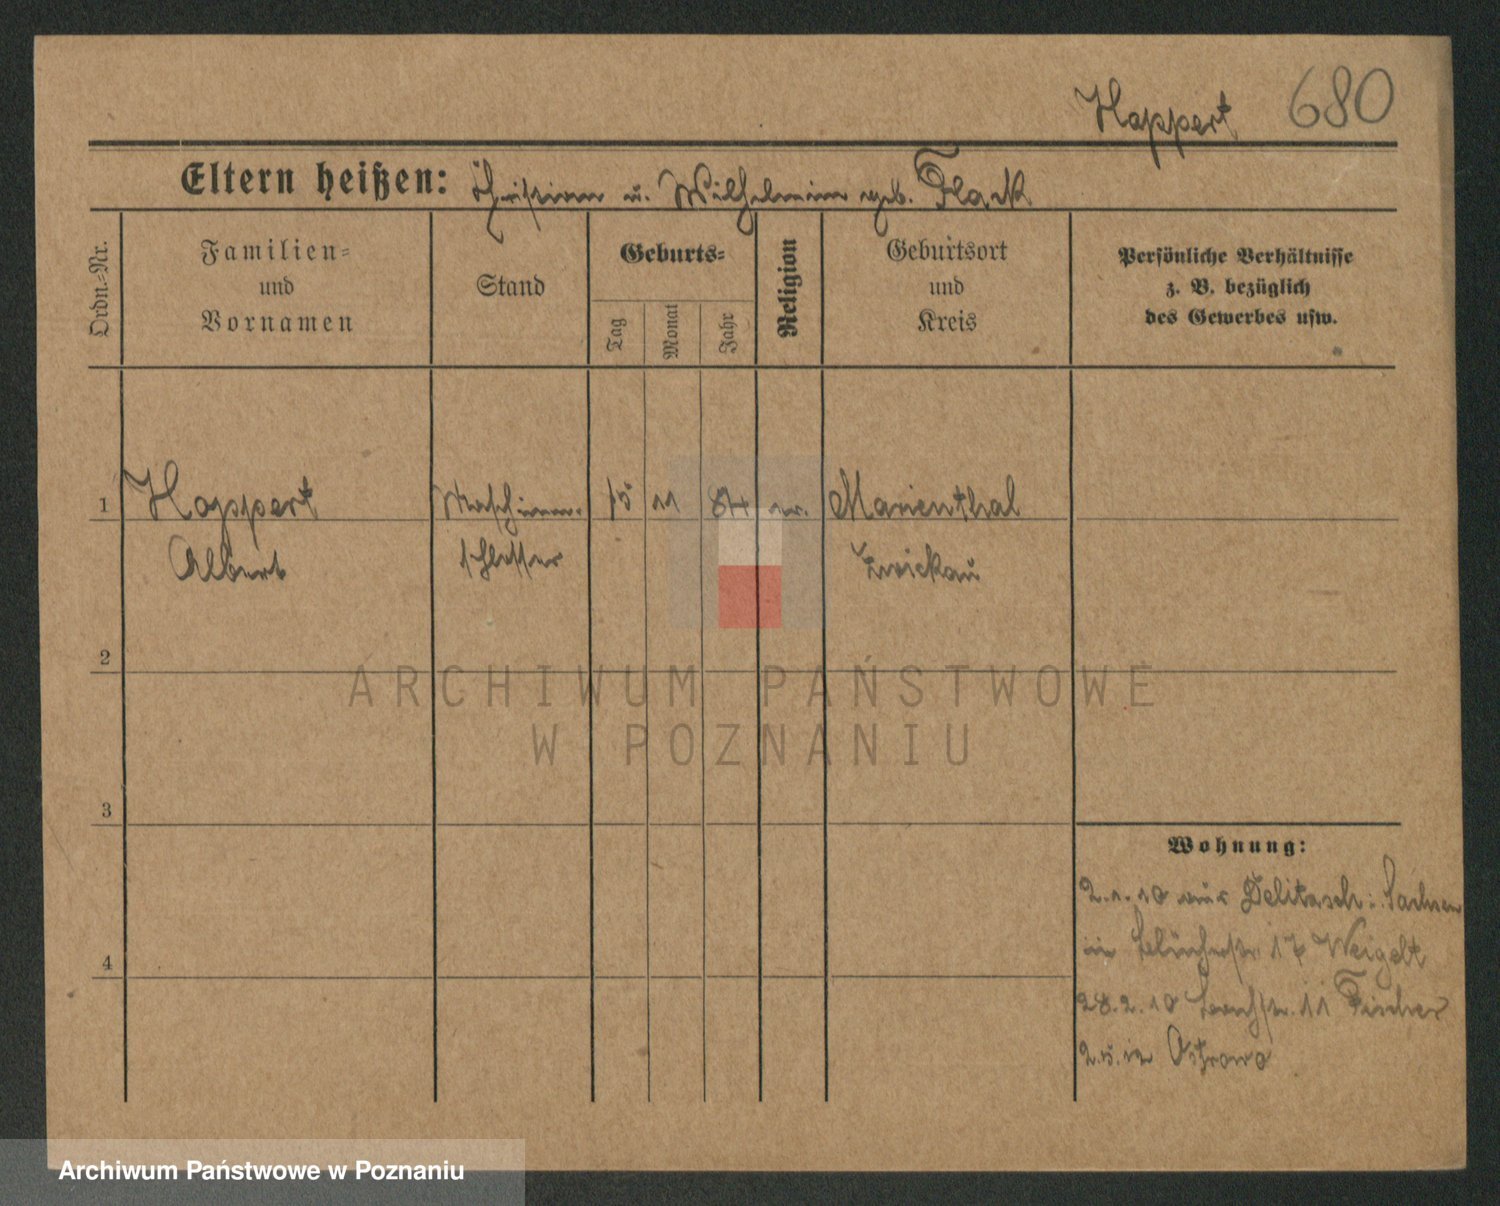 Hoppert 680
Eltern heißen: Christian u. Wilhelmine geb. Flack
Ordn.-Nr.
Familien-
und
Vornamen
Stand
Geburts-
Tag
Monat
Jahr
Religion
Geburtsort
und
Kreis
Persönliche Verhältnisse
z. B. bezüglich
des Gewerbes usw.
1 Hoppert Maschinen- 15 11 84 ev. Marienthal
Albert schlosser Zwickau
2
ARCHIWUM PAŃSTWOWE
W POZNANIU
3
Wohnung:
2.1.10 aus Delitzsch i. Sachsen
in 17 Weigelt
4
28.2.10 11 Fischer
2.5. in Ostrowo
Archiwum Państwowe w Poznaniu